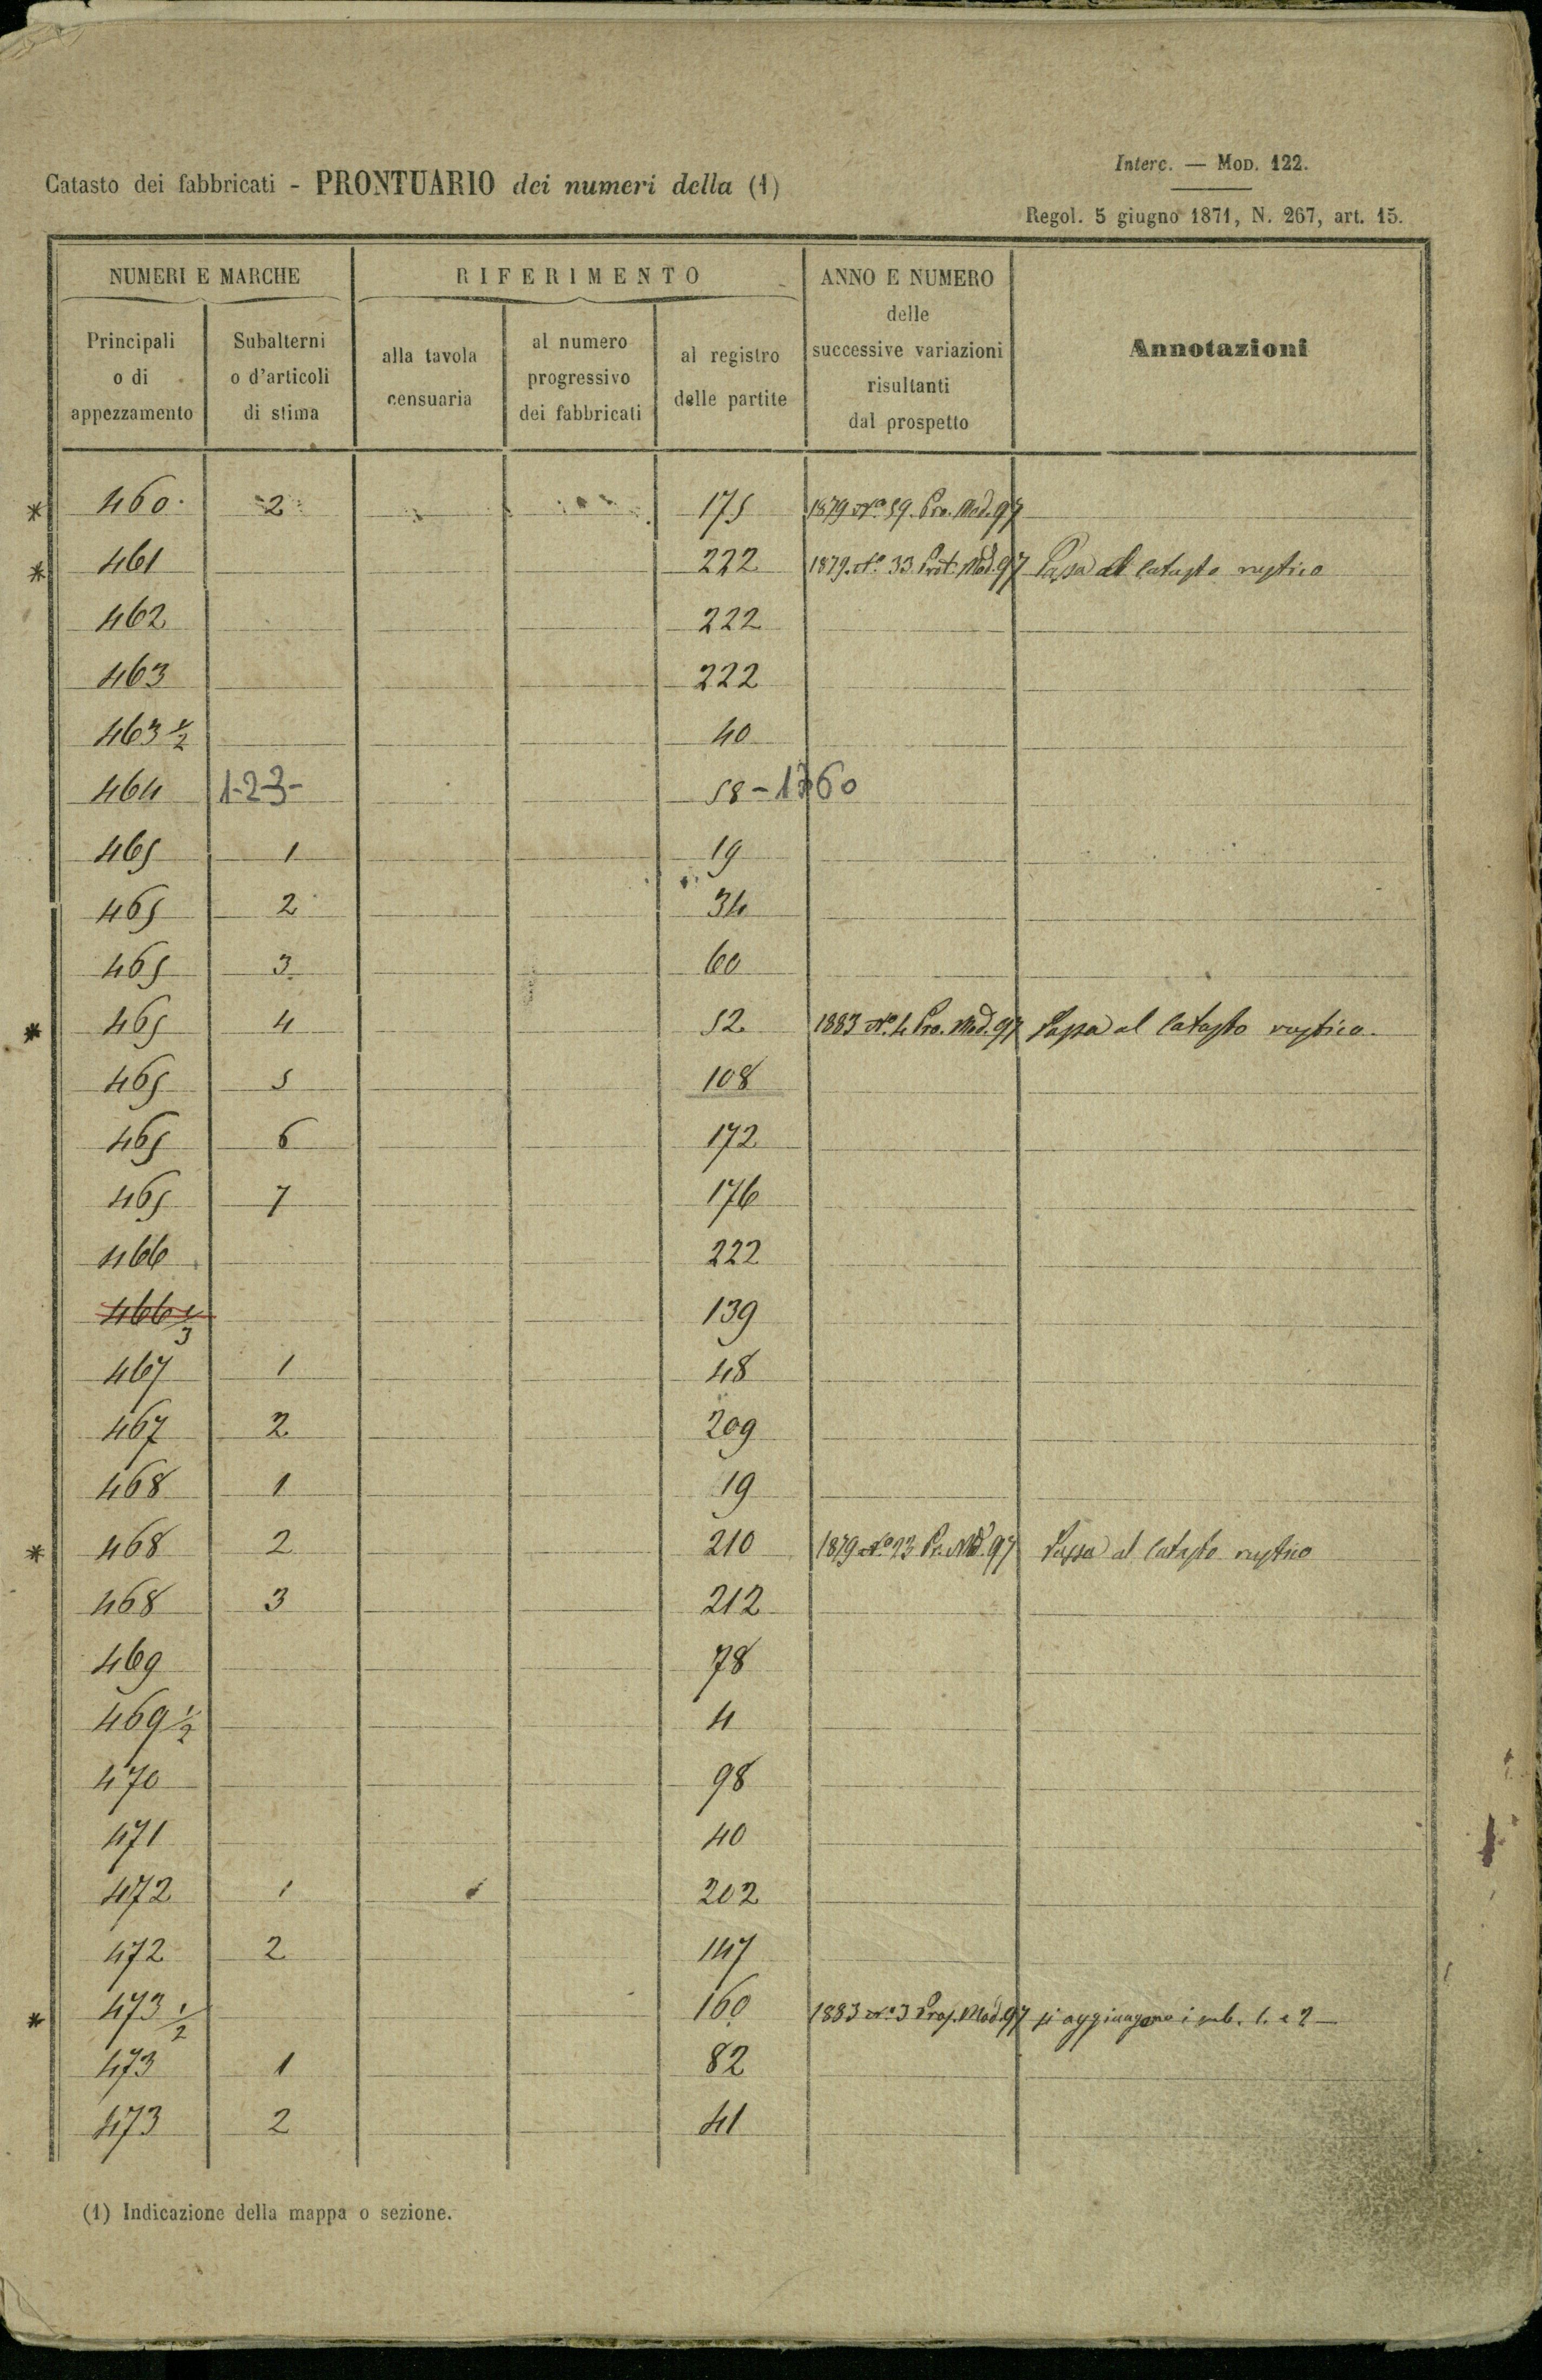 Interc. — MOD. 122.
Catasto dei fabbricati - PRONTUARIO dei numeri della (1)
Regol. 5 giugno 1871, N. 267, art. 15.
NUMERI E MARCHE RIFERIMENTO ANNO E NUMERO delle successive variazioni risultanti dal prospetto Annotazioni
Principali o di appezzamento Subalterni o d'articoli di stima alla tavola censuaria al numero progressivo dei fabbricati al registro delle partite
* 460 2 175 1879 No. 59. Pro. Mod. 97
* 461 222 1879. No. 33 Prot. Mod. 97 Passa al Catasto rustico
462 222
463 222
463 1/2 40
464 1-2-3- 58 - 1760
465 1 19
465 2 34
465 3 60
* 465 4 52 1883 No. 4 Pro. Mod. 97 Passa al Catasto rustico.
465 5 108
465 6 172
465 7 176
466 222
466 1/3 139
467 1 48
467 2 209
468 1 19
* 468 2 210 1879 No. 23 Pr. Md. 97 Passa al Catasto rustico
468 3 212
469 78
469 1/2 4
470 98
471 40
472 1 202
472 2 147
* 473 1/2 160 1883 No. 3 Prof. Mod. 97 si aggiungono i sub. 1. e 2 —
473 1 82
473 2 41
(1) Indicazione della mappa o sezione.